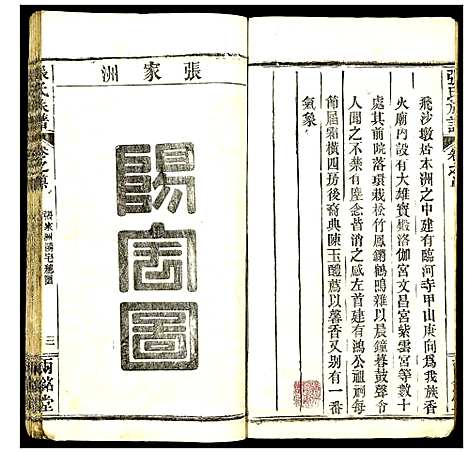 張氏族譜
飛沙墩居本洲之中建有臨河寺甲山庚向爲我族香
火廟內設有大雄寶殿洛伽宮文昌宮紫雲宮等數十
處其前院落環栽松竹鳳鏘鶴鳴雜以晨鐘暮鼓聲令
人聞之不禁有塵念皆消之感左首建有鴻公祖祠每
節屆霜橫四房後裔典陳玉醴薦以馨香又别有一番
氣象
張家洲
陽宅圖
張氏族譜
張家洲陽宅總圖
三
兩銘堂